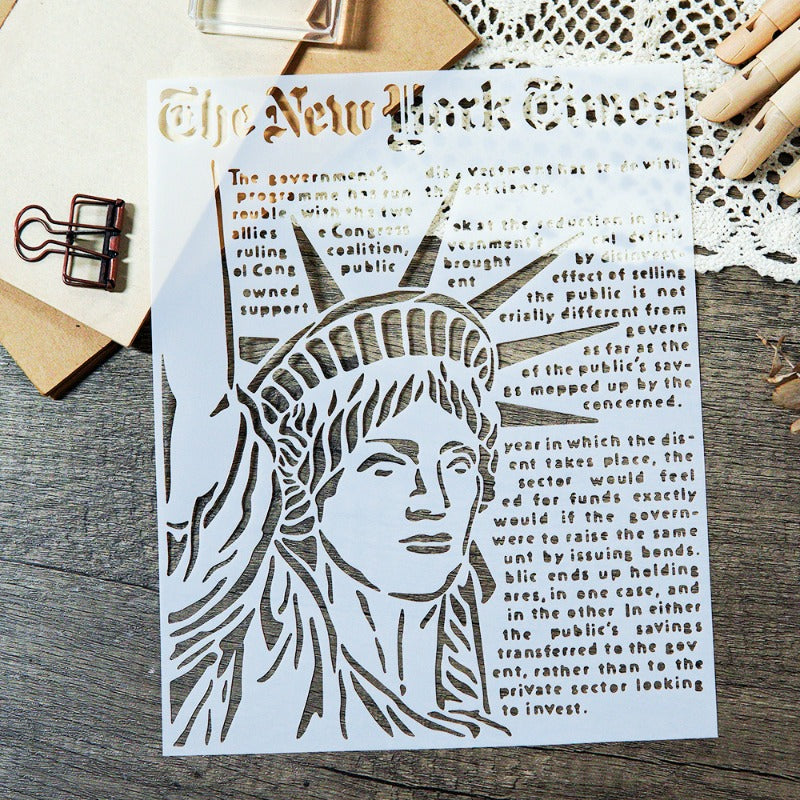 The New York Times
The government's
programme has run
rouble with the two
allies e Congress
ruling coalition,
of Cong public
owned
support
vestment has to do with
the efficiency.
ok at the reduction in the
vernment's
brought by disinvest-
ent effect of selling
the public is not
erially different from
govern
as far as the
of the public's sav-
gs mopped up by the
concerned.
year in which the dis-
ent takes place, the
sector would feel
ed for funds exactly
would if the govern-
were to raise the same
unt by issuing bonds.
blic ends up holding
ares, in one case, and
in the other In either
the public's savings
transferred to the gov
ent, rather than to the
private sector looking
to invest.